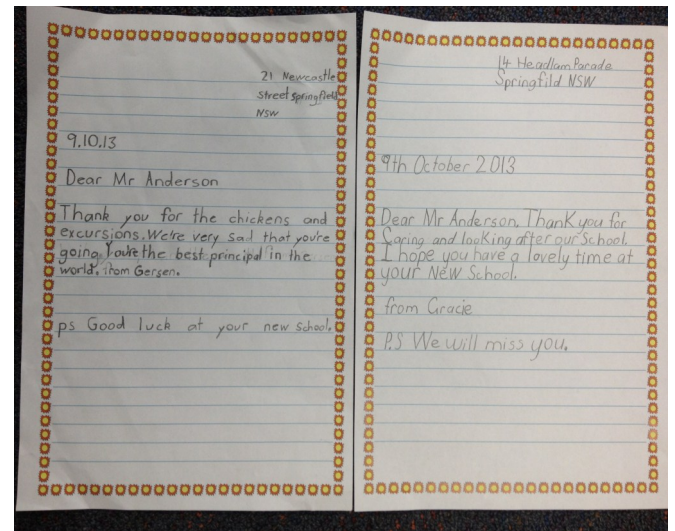 21 Newcastle
Street Springfield
NSW
9.10.13
Dear Mr Anderson
Thank you for the chickens and
excursions. We're very sad that you're
going. You're the best principal in the
world. from Gersen.
ps Good luck at your new school.
14 Headlam Parade
Springfild NSW
9th October 2013
Dear Mr Anderson, Thank you for
Caring and looking after our School.
I hope you have a lovely time at
your New School.
from Gracie
P.S We will miss you.